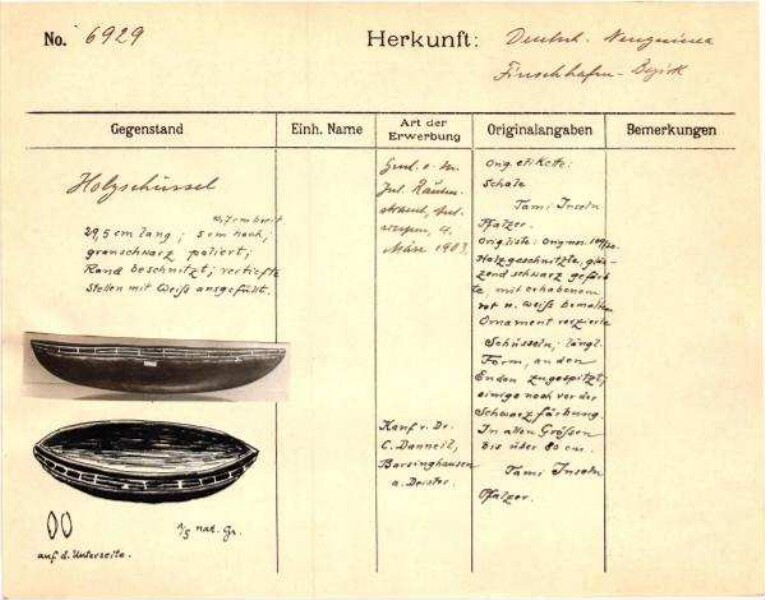 No. 6929
Herkunft: Deutsch. Neuguinea
Finschhafen-Bezirk
Gegenstand
Einh. Name
Art der
Erwerbung
Originalangaben
Bemerkungen
Holzschüssel
29,5 cm lang; 5 cm hoch;
grauschwarz poliert;
Rand beschnitzt; vertiefte
Stellen mit Weiß ausgefüllt.
auf d. Unterseite.
1/5 nat. Gr.
März 1903.
Kauf v. Dr.
C. Danneil,
Barsinghausen
a. Deister.
Orig. etikette:
Schale
Tami Inseln
Pfalzer.
Origliste:
Holzgeschnitzte, glän-
zend schwarz gefärb
te mit erhabenem
rot u. weiß bemalten
Ornament verzierte
Schüsseln, längl.
Form, an den
Enden zugespitzt,
einige noch vor der
Schwarzfärbung.
In allen Größen
bis über 80 cm.
Tami Inseln
Pfalzer.